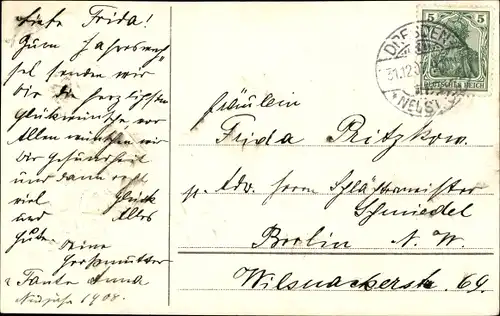 Liebe Frida!
Zum Jahreswech-
sel senden wir
dir die herzlichsten
Glückwünsche vor
Allem wünschen wir
Dir Gesundheit
und dann recht
viel Glück
und Alles
Gute. Deine
Großmutter
Tante Anna
Neujahr 1908.
Fräulein
Frida Ritzkow.
p. Adr. Herrn Schlächtermeister
Schmiedel
Berlin N. W.
Wilsnackerstr. 69.
DRESDEN
31.12.07
NEUST.
5 5
DEUTSCHES REICH